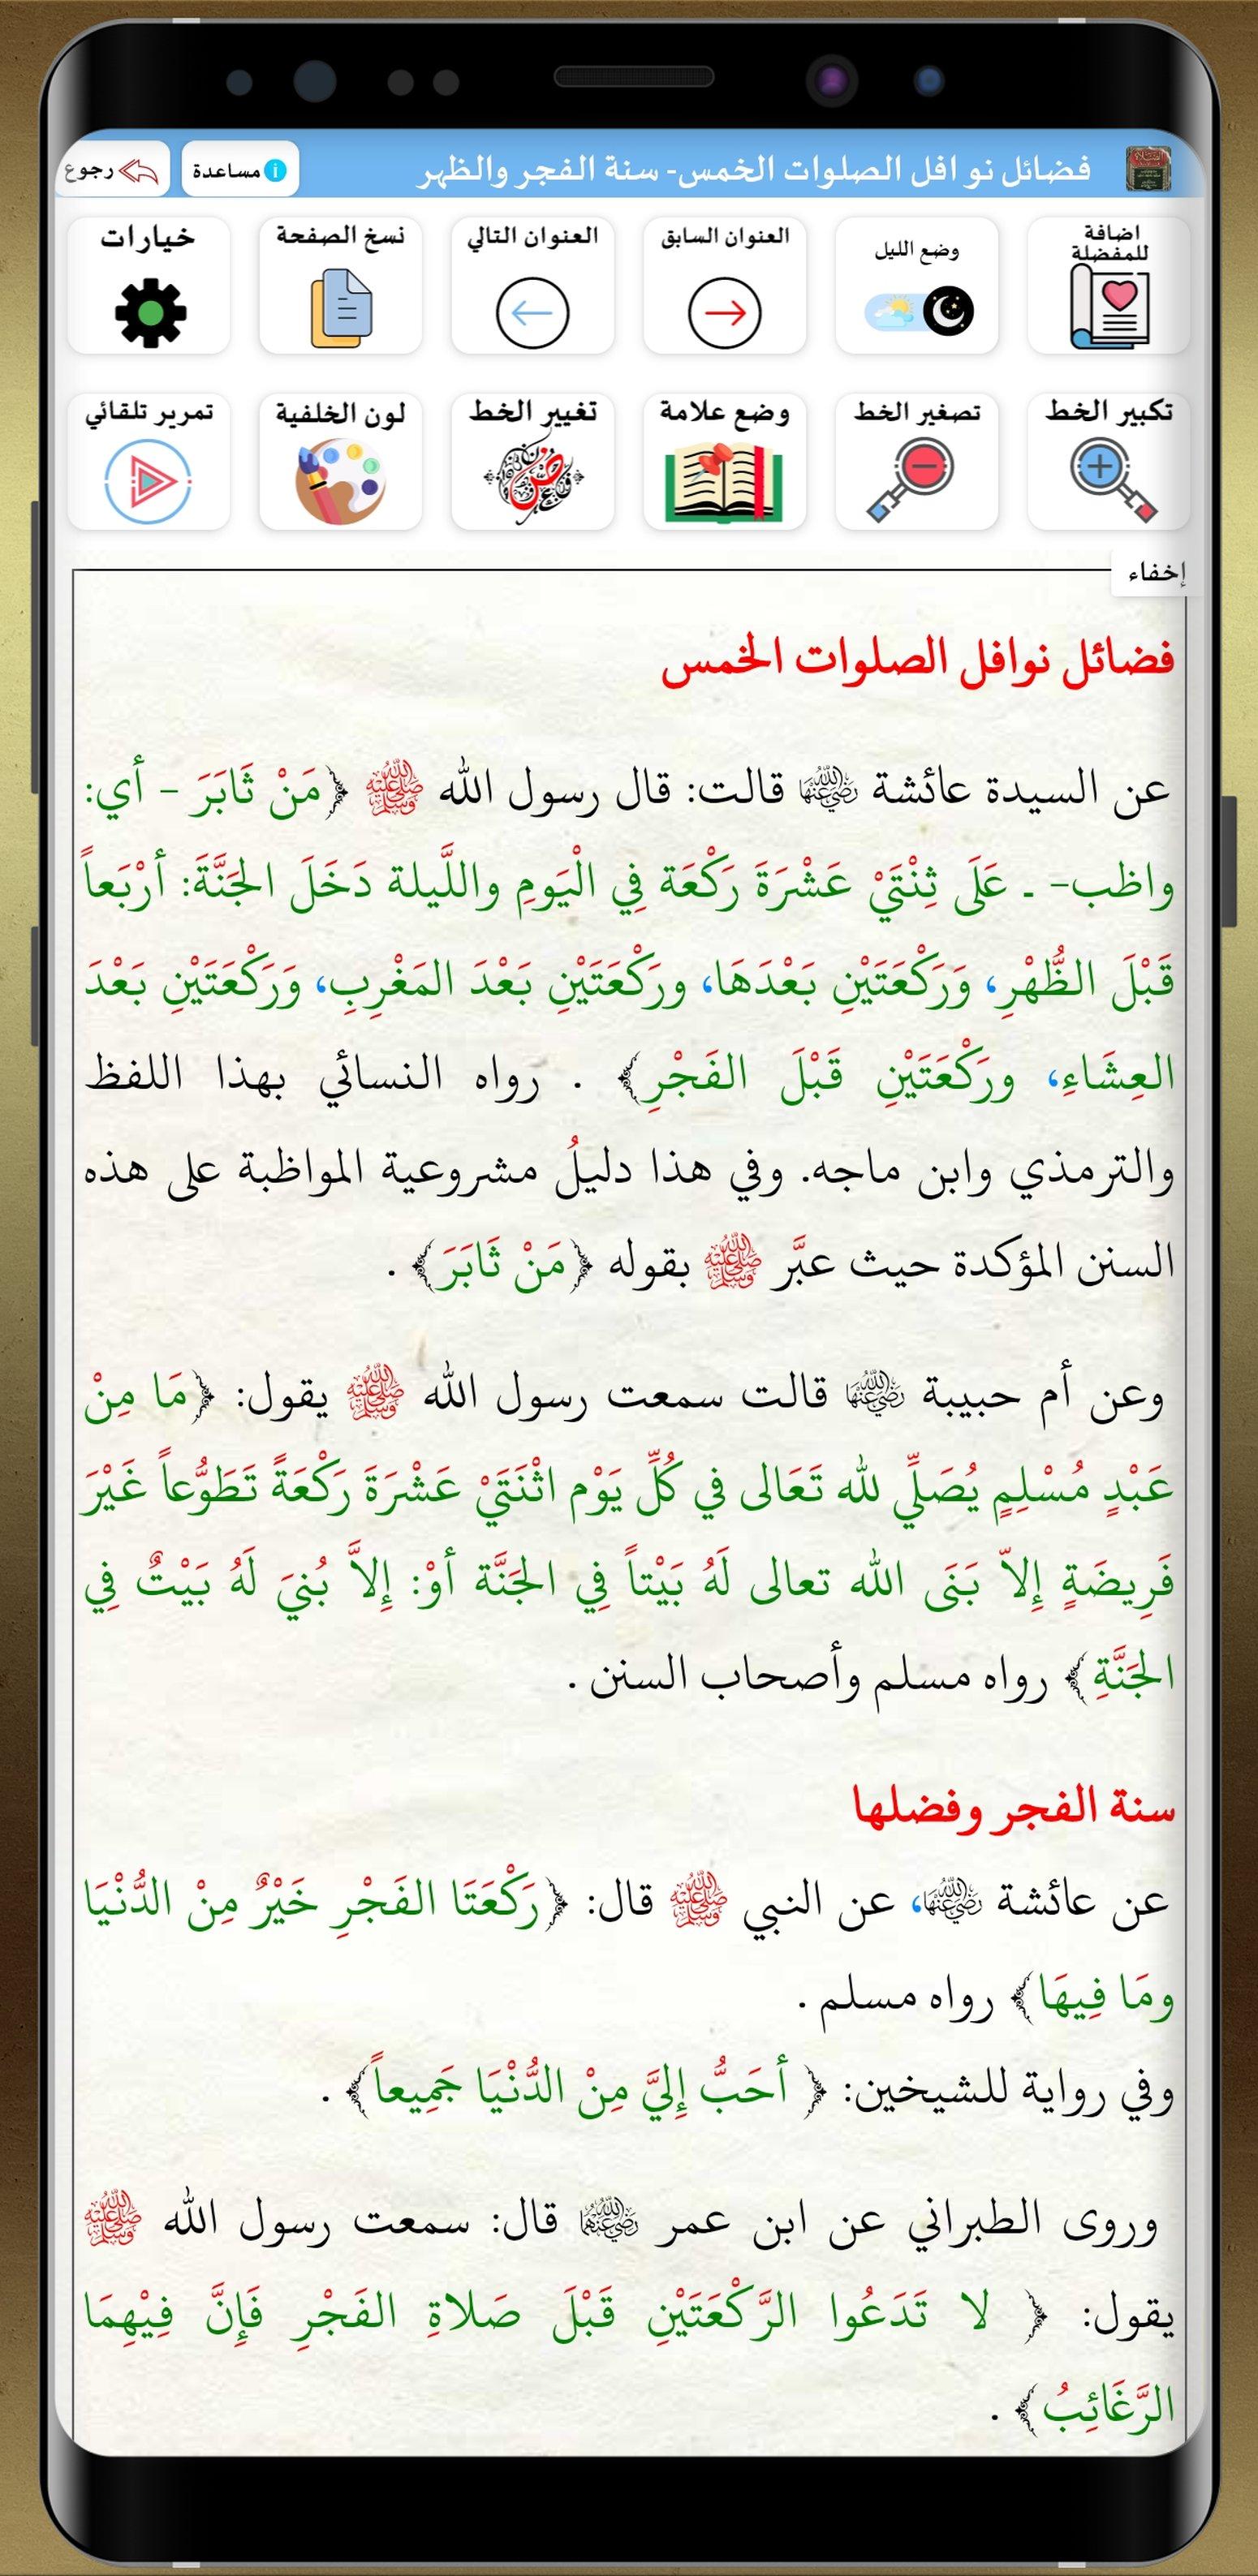 فضائل نو افل الصلوات الخمس- سنة الفجر والظهر
مساعدة
رجوع
اضافة للمفضلة
وضع الليل
العنوان السابق
العنوان التالي
نسخ الصفحة
خيارات
تكبير الخط
تصغير الخط
وضع علامة
تغيير الخط
لون الخلفية
تمرير تلقائي
إخفاء
فضائل نوافل الصلوات الخمس
عن السيدة عائشة رضي الله عنها قالت: قال رسول الله ﷺ ﴿مَنْ ثَابَرَ – أي:
واظب- ـ عَلَى ثِنْتَيْ عَشْرَةَ رَكْعَة فِي الْيَومِ واللَّيلة دَخَلَ الجَنَّةَ: أرْبَعاً
قَبْلَ الظُّهْرِ، وَرَكْعَتَيْنِ بَعْدَهَا، ورَكْعَتَيْنِ بَعْدَ المَغْرِبِ، وَرَكْعَتَيْنِ بَعْدَ
العِشَاءِ، ورَكْعَتَيْنِ قَبْلَ الفَجْرِ﴾ . رواه النسائي بهذا اللفظ
والترمذي وابن ماجه. وفي هذا دليلُ مشروعية المواظبة على هذه
السنن المؤكدة حيث عبَّر ﷺ بقوله ﴿مَنْ ثَابَرَ﴾ .
وعن أم حبيبة رضي الله عنها قالت سمعت رسول الله ﷺ يقول: ﴿مَا مِنْ
عَبْدٍ مُسْلِمٍ يُصَلِّي لله تَعَالى في كُلِّ يَوْم اثْنَتَيْ عَشْرَةَ رَكْعَةً تَطَوُّعاً غَيْرَ
فَرِيضَةٍ إِلاّ بَنَى الله تعالى لَهُ بَيْتاً فِي الجَنَّة أوْ: إِلاَّ بُنيَ لَهُ بَيْتٌ فِي
الجَنَّةِ﴾ رواه مسلم وأصحاب السنن .
سنة الفجر وفضلها
عن عائشة رضي الله عنها، عن النبي ﷺ قال: ﴿رَكْعَتَا الفَجْرِ خَيْرٌ مِنْ الدُّنْيَا
ومَا فِيهَا﴾ رواه مسلم .
وفي رواية للشيخين: ﴿ أحَبُّ إِليَّ مِنْ الدُّنْيَا جَمِيعاً﴾ .
وروى الطبراني عن ابن عمر رضي الله عنهما قال: سمعت رسول الله ﷺ
يقول: ﴿ لا تَدَعُوا الرَّكْعَتَيْنِ قَبْلَ صَلاةِ الفَجْرِ فَإِنَّ فِيْهِمَا
الرَّغَائِبُ﴾ .